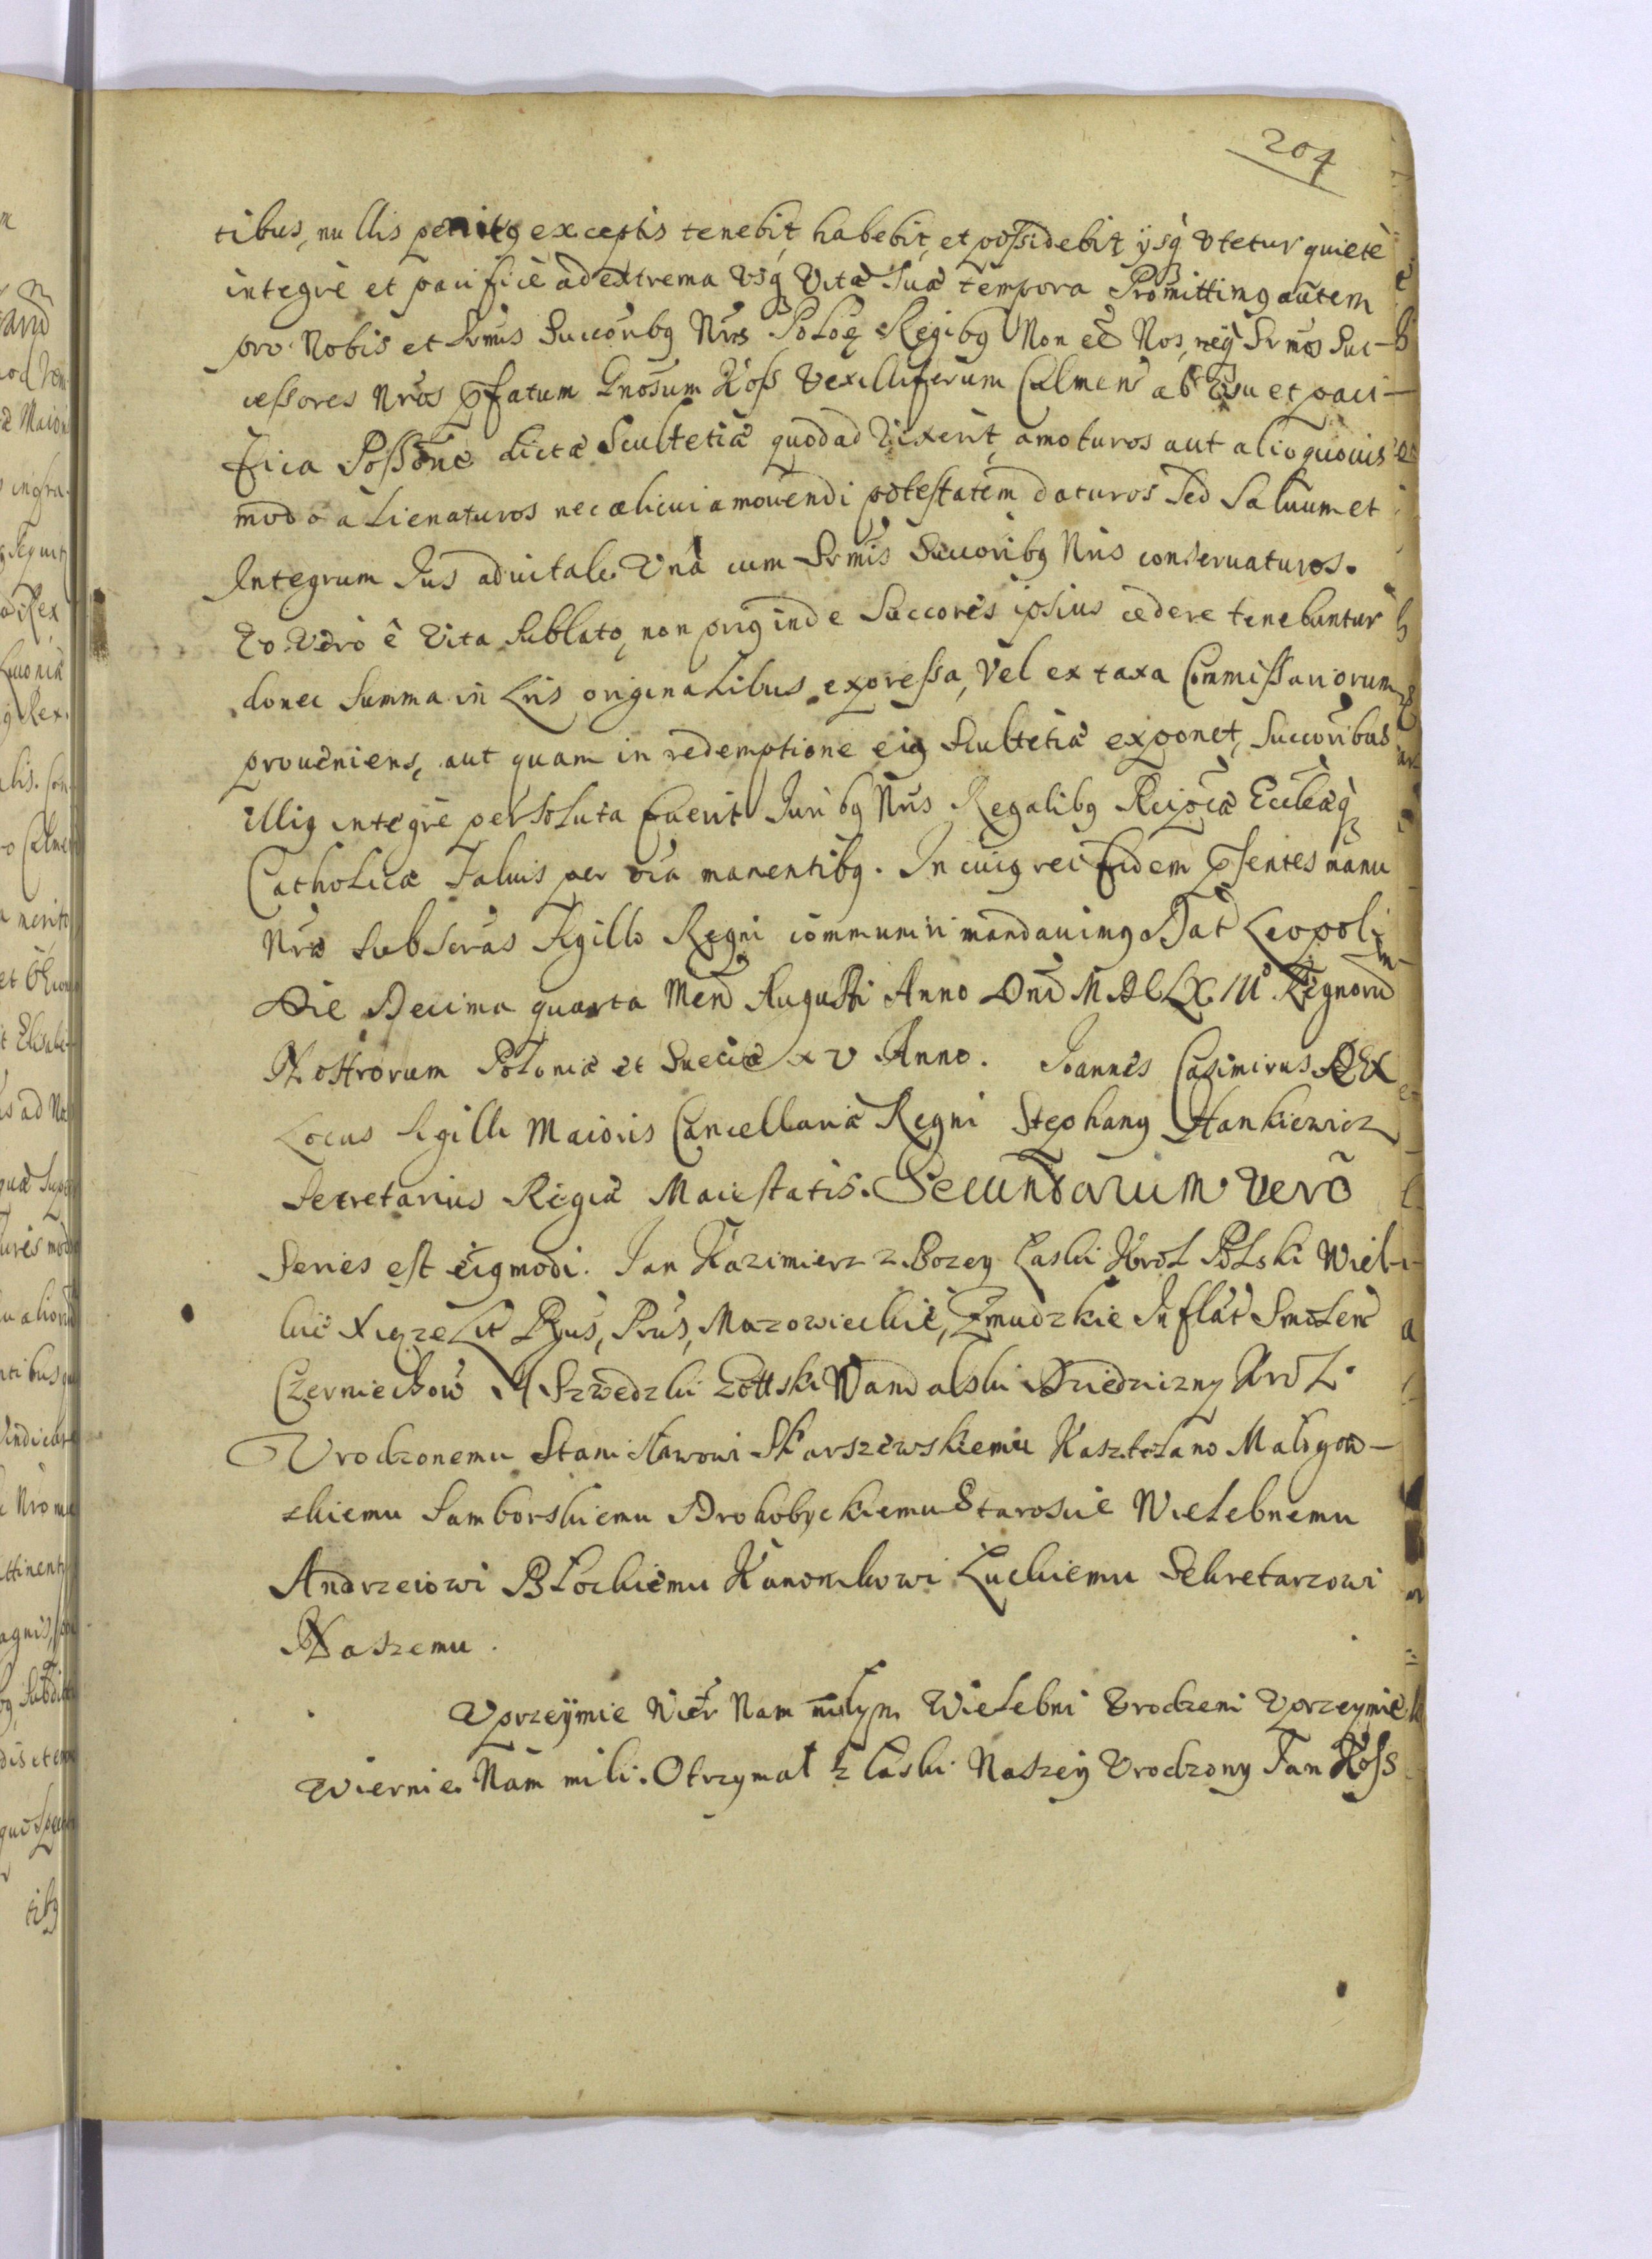 204
tibus, nullis penitq exceptis tenebit, habebit, et possidebit ysq Vtetur quietè
integrè et pacificè ad extrema Vsq Vitæ Suæ tempora Promittimq autem
pro Nobis et Srmis Succoribq Nris Poloæ Regibq Non eē Nos, neq Srmos Suc-
cessores Nros pfatum Gnosum Koss Vexilliferum Calmen ab Vsu et paci-
fica Possone dictæ Scultetiæ quod ad Vixerit, amoturos aut alio quouis
modo alienaturos nec alicui amouendi potestatem daturos Sed Saluum et
Integrum Jus aduitale Vnà cum Srmis Succoribq Nris conseruaturos.
Eo Vero è Vita Sublato, non priq inde Succores ipsius cedere tenebuntur
donec Summa in Lris originalibus expressa, Vel ex taxa Commissariorum
proueniens, aut quam in redemptione eiq Scultetiæ exponet, Succoribus
illiq integrè persoluta fuerit Juribq Nris Regalibq Reipcæ Ecclæq
Catholicæ Saluis per oia manentibq. In cuiq rei fidem psentes manu
Nra Subscras Sigillo Regni communiri mandauimq Dat Leopoli
Die Decima quarta Mens Augusti Anno Dni MDCLXIII Regnorum
Nostrorum Poloniæ et Sueciæ XV Anno. Joannes Casimirus REX
Locus Sigilli Maioris Cancellariæ Regni Stephanq Hankiewicz
Secretarius Regiæ Maiestatis. Secundarum verò
Series est eiqmodi. Jan Kazimierz z Bozey Łaski Krol Polski Wiel-
kie Xiąze Lit Rus, Prus, Mazowieckie, Zmudzkie Inflat Smolen
Czerniechow A Szwedzki Gottski Wandalski Dziedziczny Krol.
Vrodzonemu Stanisławowi Skarszewskiemu Kasztelano Małogow-
skiemu Samborskiemu Drohobyckiemu Staroscie Wielebnemu
Andrzeiowi Błockiemu Kanonikowi Łuckiemu Sekretarzowi
Naszemu.
Vprzeÿmie Wier Nam miłym Wielebni Vrodzeni Vprzeymie
Wiernie Nam mili. Otrzymał z Łaski Naszey Vrodzony Jan Koss